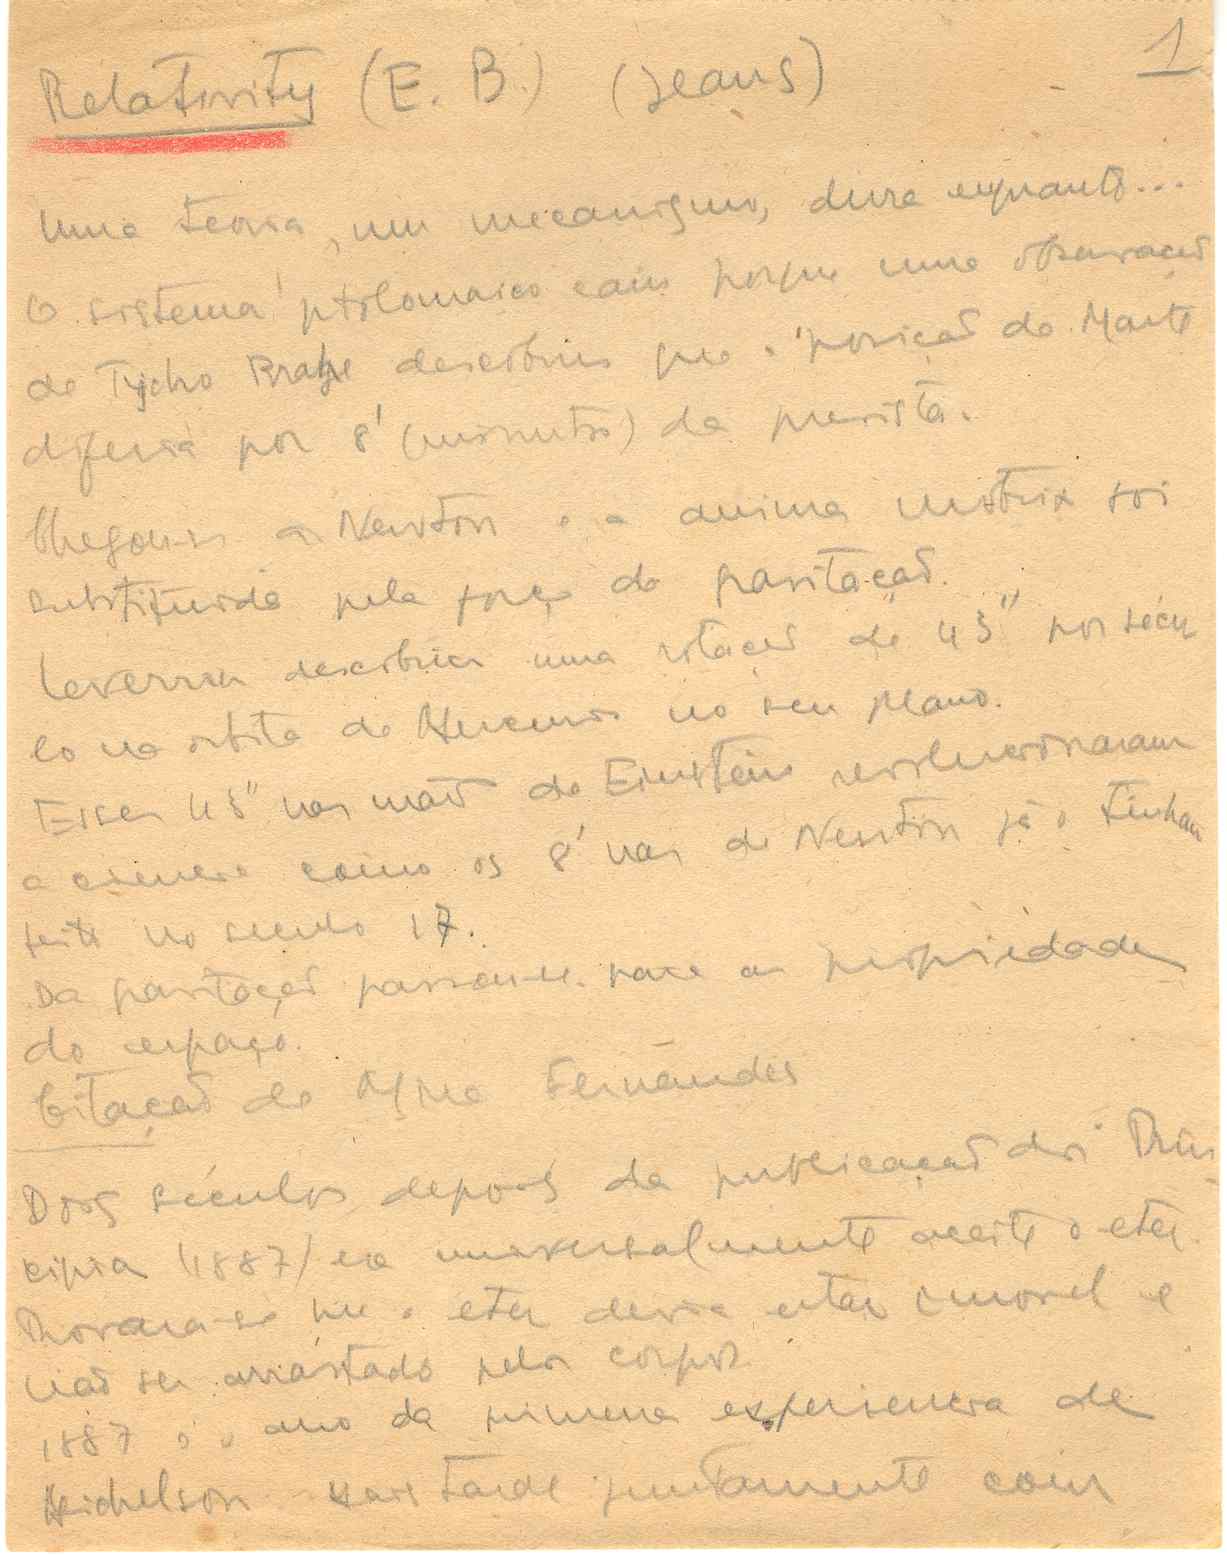 1
Relativity (E. B.) (Jeans)
Uma teoria, um mecanismo, dura enquanto...
O sistema ptolomaico caiu porque uma observação
de Tycho Brahe descobriu que a posição de Marte
diferia por 8' (minutos) da prevista.
Chegou-se a Newton e a anima motrix foi
substituida pela força de gravitação.
Leverrier descobriu uma rotação de 43" por sécu
lo na orbita de Mercurio no seu plano.
Esses 43" nas mãos de Einstein revolucionaram
a ciencia como os 8' nas de Newton já o tinham
feito no seculo 17.
Da gravitação passou-se para as propriedades
do espaço.
Citação de Fernandes
Dois séculos depois da publicação dos Prin
cipia (1887) era universalmente aceite o eter.
Provara-se que o eter devia estar imovel e
não ser arrastado pelos corpos.
1887 é o ano da primeira experiencia de
Michelson mais tarde juntamente com